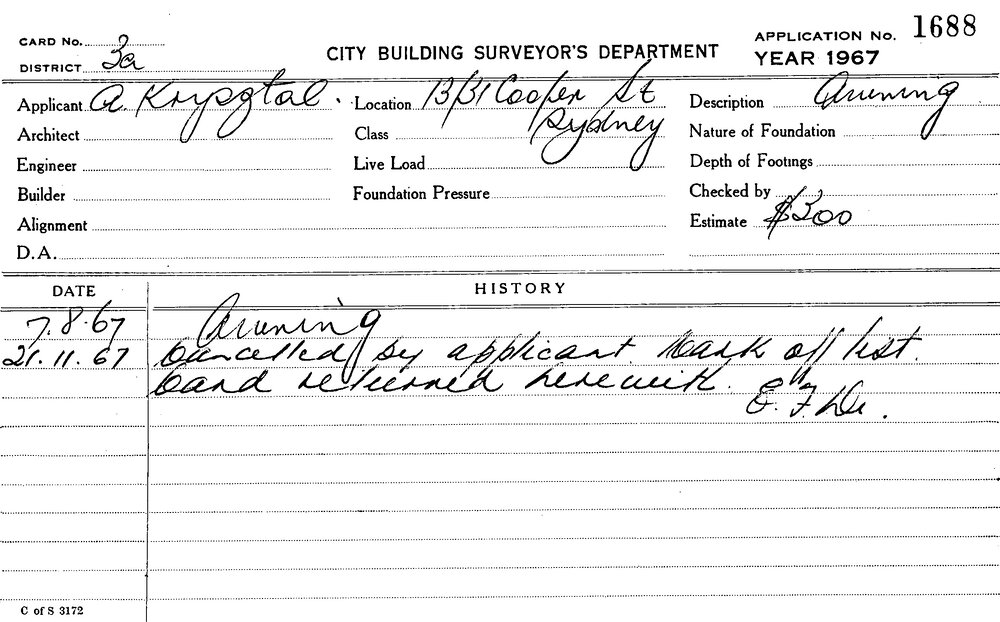 CARD No.
DISTRICT 3a
CITY BUILDING SURVEYOR'S DEPARTMENT
APPLICATION No. 1688
YEAR 1967
Applicant A. Krysztal. Location 13/31 Cooper St Description Awning
Architect Class Sydney Nature of Foundation
Engineer Live Load Depth of Footings
Builder Foundation Pressure Checked by
Alignment Estimate $300
D.A.
DATE HISTORY
7.8.67 Awning
21.11.67 Cancelled by applicant. Mark off list.
Card returned herewith. E.F.
C of S 3172